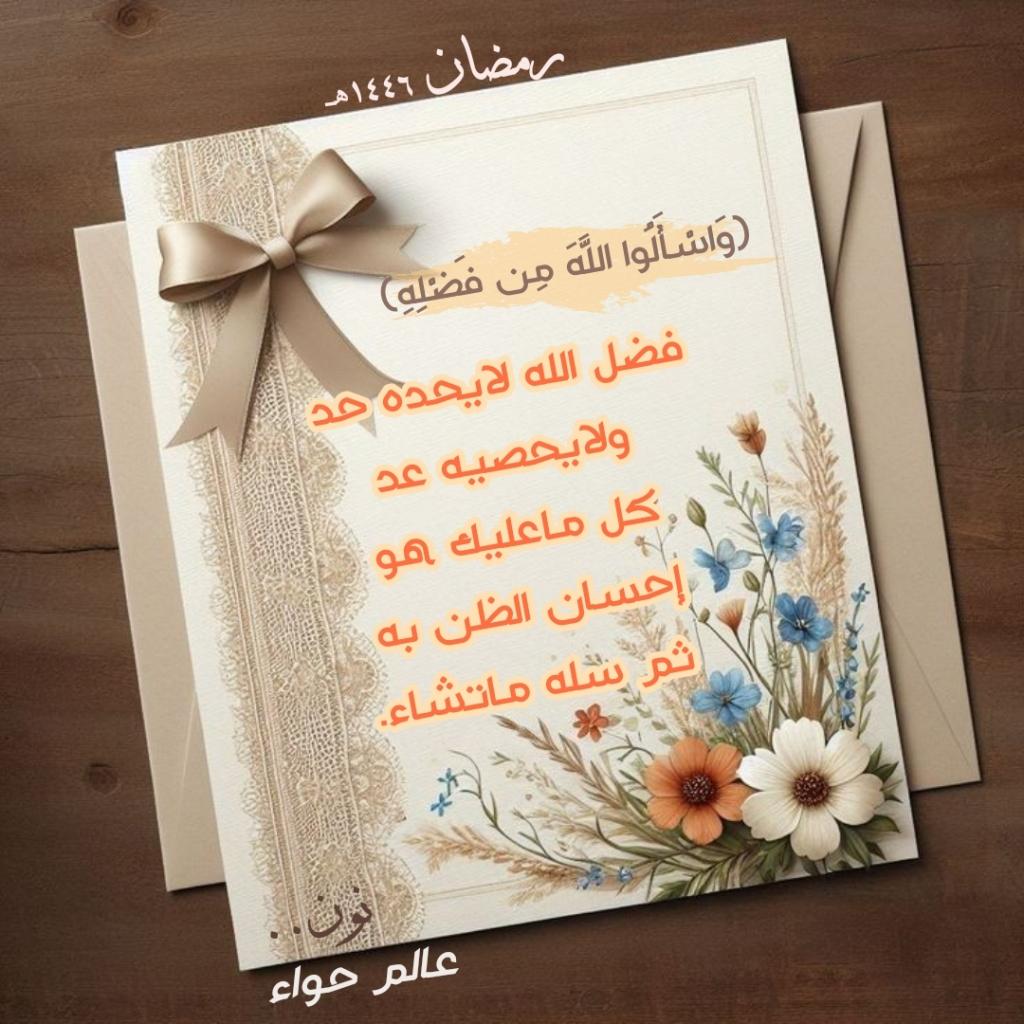 رمضان ١٤٤٦هـ
(وَاسْأَلُوا اللَّهَ مِن فَضْلِهِ)
فضل الله لايحده حد
ولايحصيه عد
كل ماعليك هو
إحسان الظن به
ثم سله ماتشاء.
نون..
عالم حواء